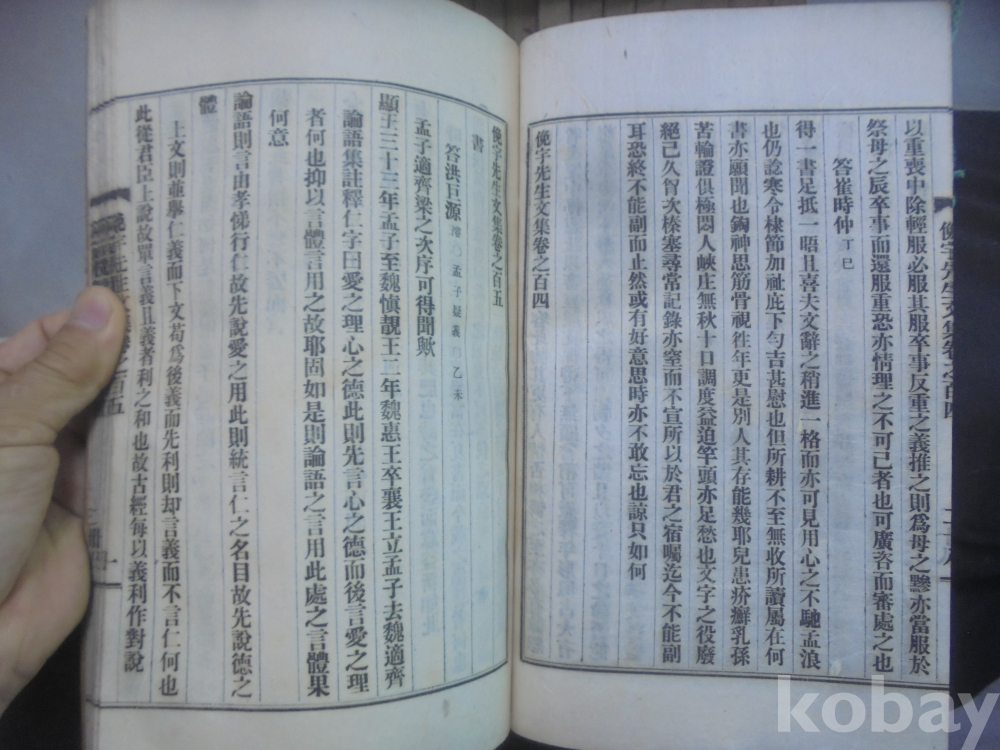 以重喪中除輕服必服其服卒事反重之義推之則爲母之䵟亦當服於
祭母之辰卒事而還服重恐亦情理之不可已者也可廣咨而審處之也
答崔時仲 丁巳
得一書足抵一晤且喜夫文辭之稍進一格而亦可見用心之不馳孟浪
也仍諗寒令棣節加祉庇下勻吉甚慰也但所耕不至無收所讀屬在何
書亦願聞也鋾神思筋骨視徃年更是別人其存能幾耶兒患疥癬乳孫
苦輪證俱極悶人峽庄無秋十口調度益迫竿頭亦足愁也文字之役廢
絕已久胷次榛塞尋常記錄亦窒而不宣所以於君之宿囑迄今不能副
耳恐終不能副而止然或有好意思時亦不敢忘也諒只如何
俛宇先生文集卷之百四
俛宇先生文集卷之百四
俛宇先生文集卷之百五
書
答洪巨源 孟子疑義 乙未
孟子適齊梁之次序可得聞歟
顯王三十三年孟子至魏愼靚王二年魏惠王卒襄王立孟子去魏適齊
論語集註釋仁字曰愛之理心之德此則先言心之德而後言愛之理
者何也抑以言體言用之故耶固如是則論語之言用此處之言體果
何意
論語則言由孝悌行仁故先說愛之用此則統言仁之名目故先說德之
體
上文則並擧仁義而下文苟爲後義而先利則却言義而不言仁何也
此從君臣上說故單言義且義者利之和也故古經每以義利作對說